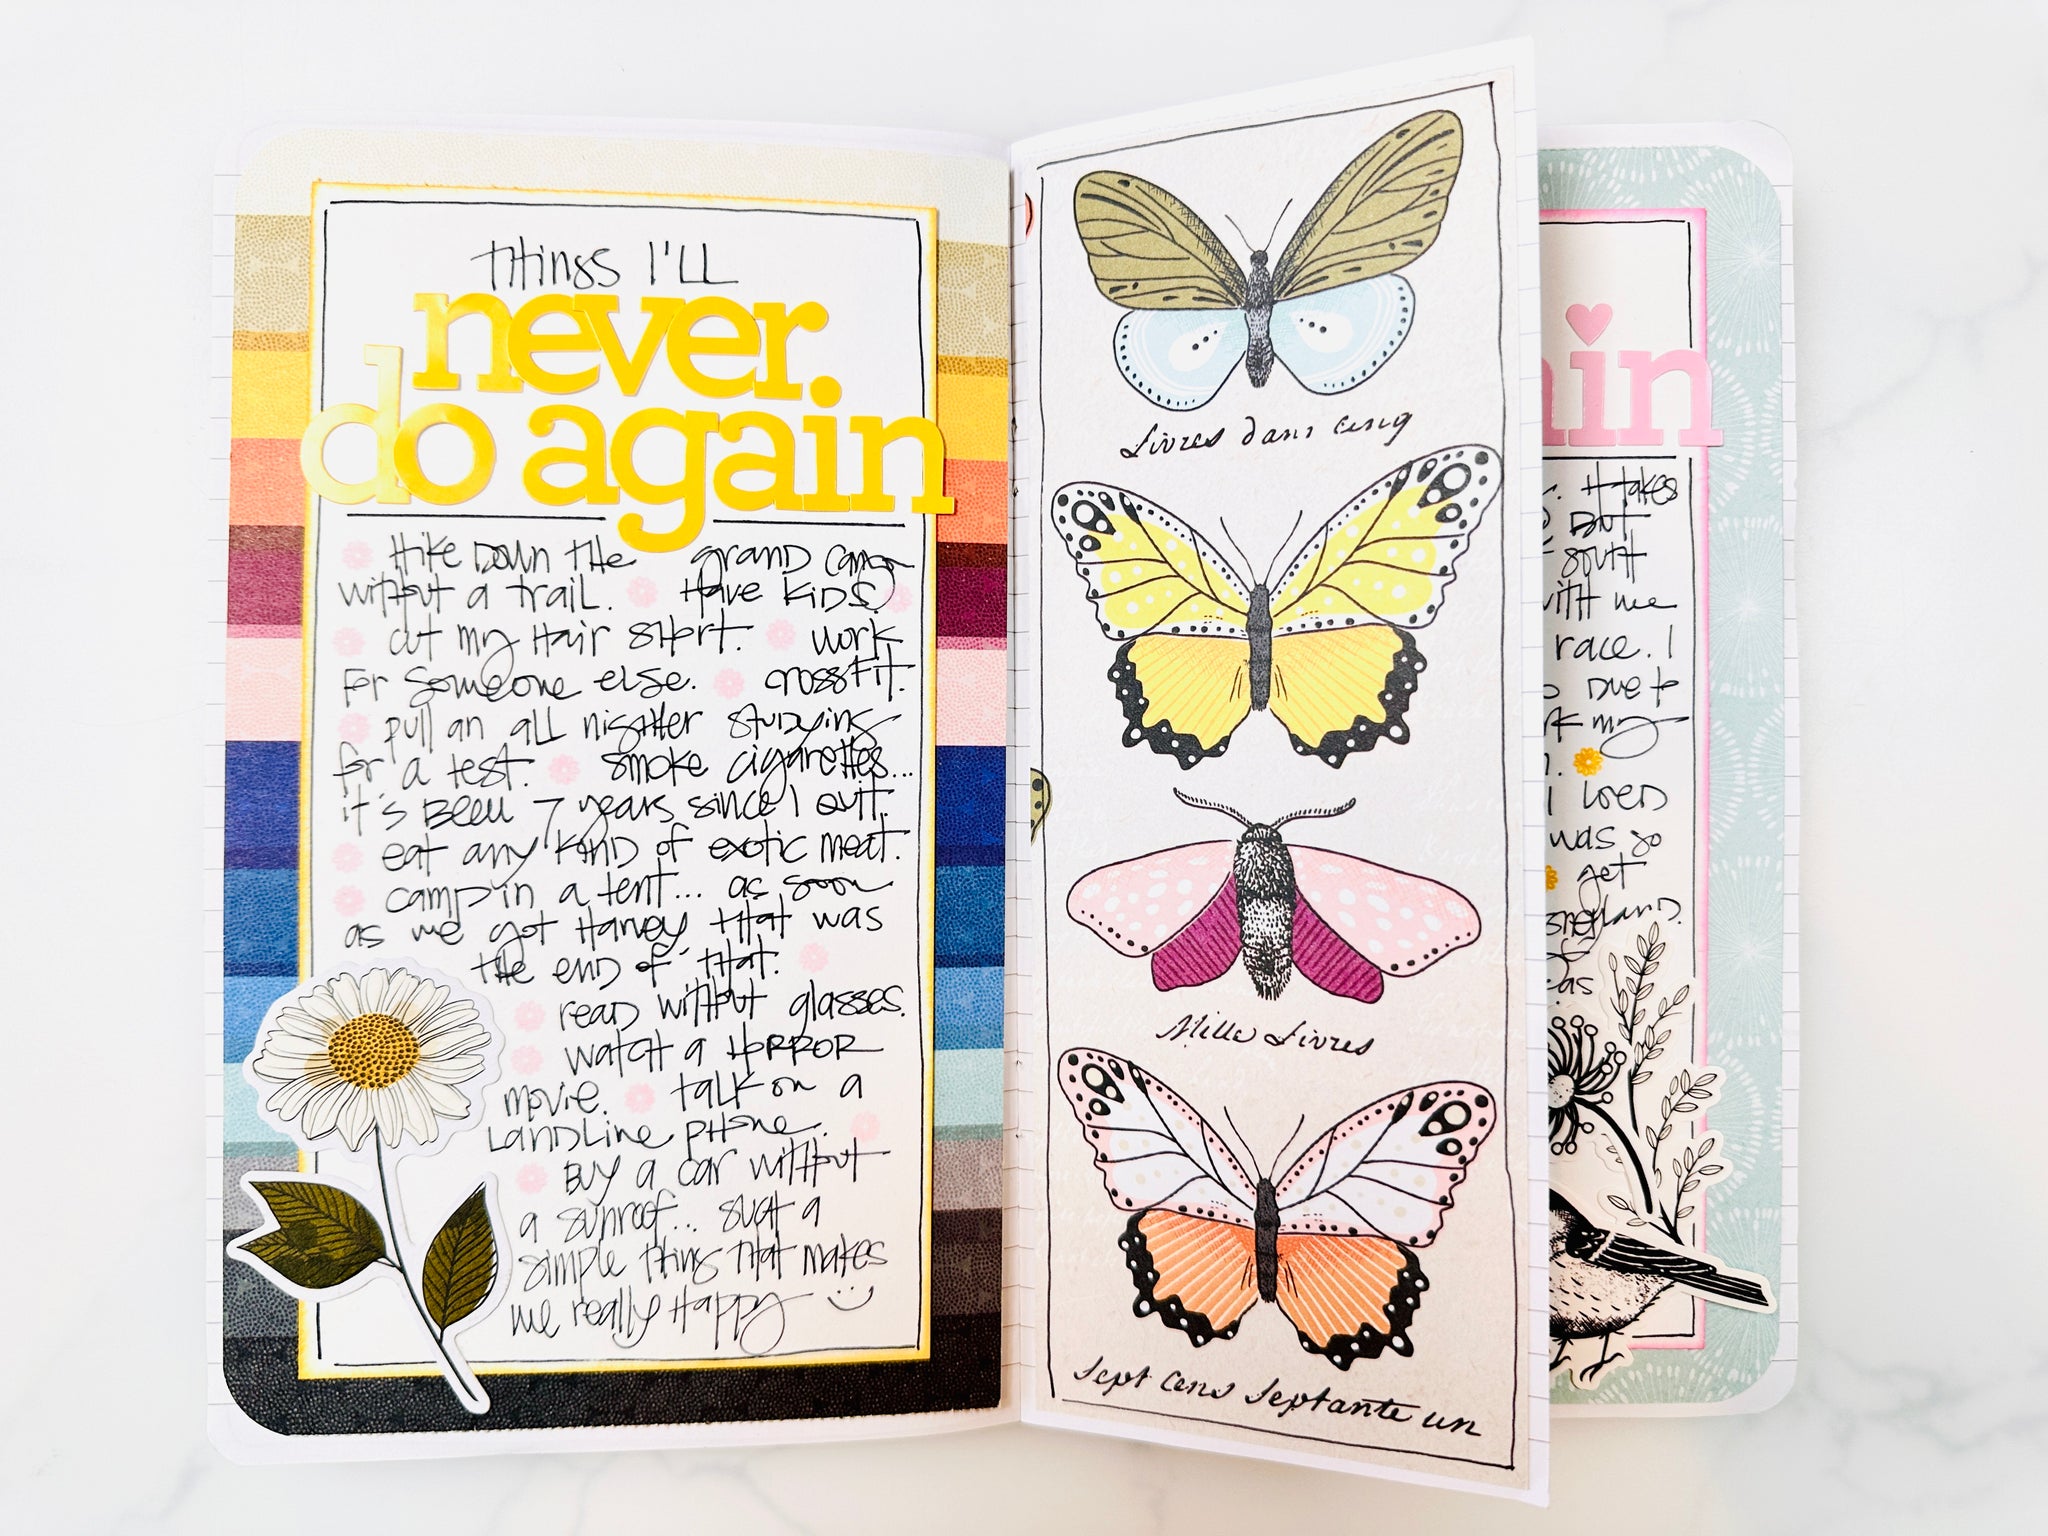 things I'll
never
do again
Hike down the grand canyon
without a trail. Have kids.
cut my hair short. work
for someone else. crossfit.
pull an all nighter studying
for a test. smoke cigarettes...
it's been 7 years since I quit.
eat any kind of exotic meat.
camp in a tent... as soon
as we got Harvey that was
the end of that.
read without glasses.
watch a horror
movie. talk on a
landline phone.
Buy a car without
a sunroof... such a
simple thing that makes
me really happy
Livres dans cinq
Mille Livres
Sept cens septante un
ain
It takes
But
south
with me
race. I
due to
my
I loved
was so
get